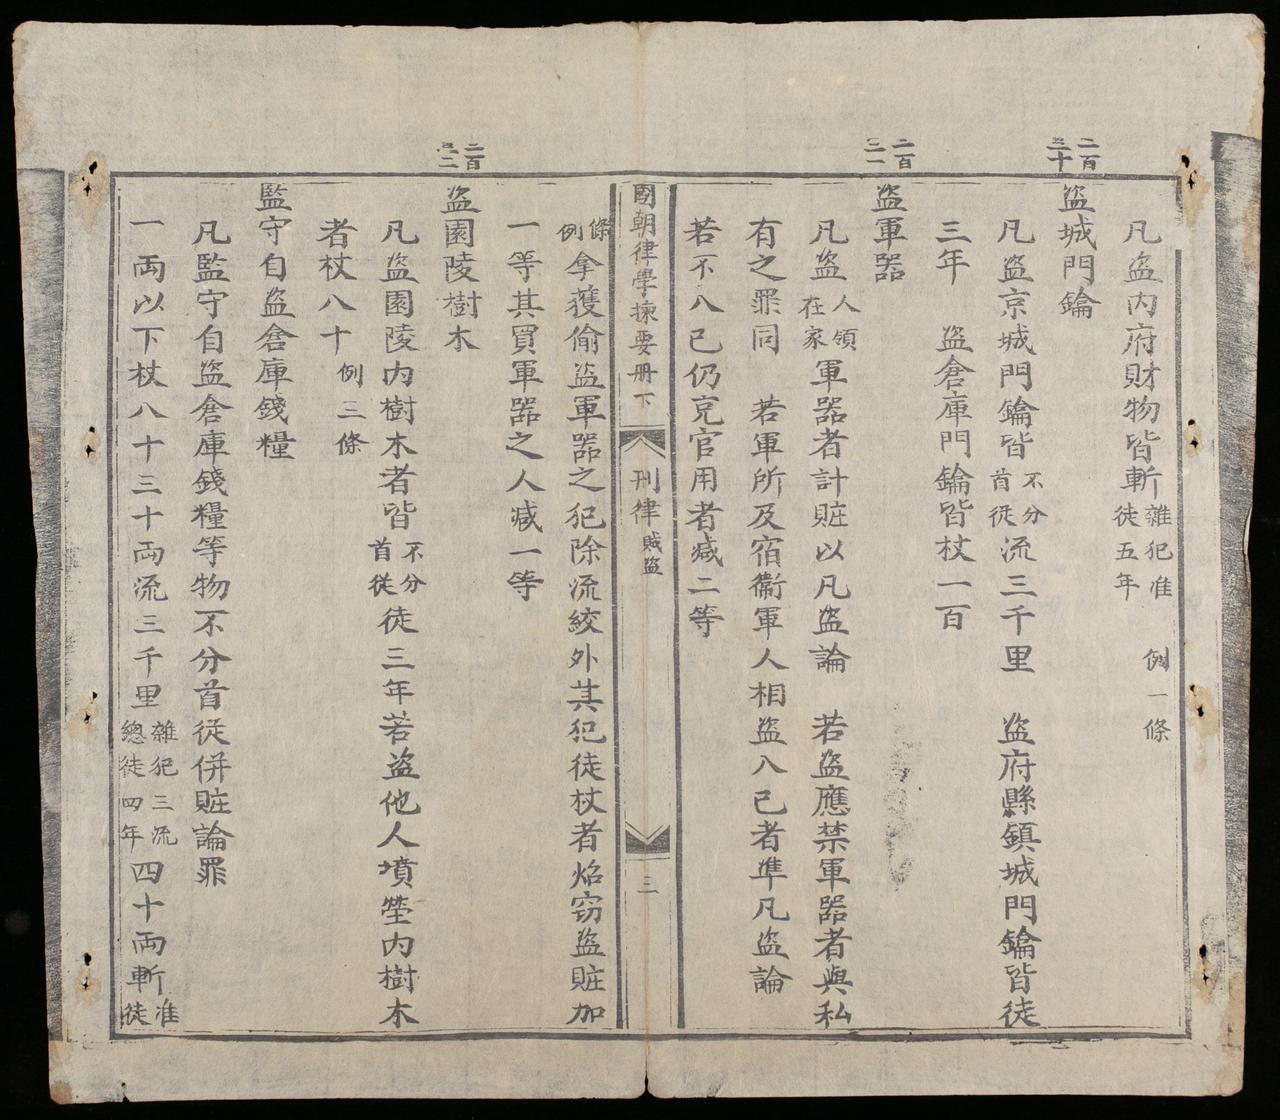 凡盗内府財物皆斬雜犯准徒五年 例一條
二百三十
盗城門鑰
凡盗京城門鑰皆不分首従流三千里 盗府縣鎮城門鑰皆徒
三年 盗倉庫門鑰皆杖一百
二百三一
盗軍器
凡盗人領在家軍器者計賍以凡盗論 若盗應禁軍器者與私
有之罪同 若軍所及宿衛軍人相盗入己者準凡盗論
若不入已仍充官用者减二等
國朝律學揀要册下 刑律 賊盗 三
條例拿獲偷盗軍器之犯除流絞外其犯徒杖者焰窃盗賍加
一等其買軍器之人减一等
二百三二
盗園陵樹木
凡盗園陵内樹木者皆不分首従徒三年若盗他人墳塋内樹木
者杖八十 例三條
監守自盗倉庫錢糧
凡監守自盗倉庫錢糧等物不分首従併賍論罪
一両以下杖八十三十両流三千里雜犯三流總徒四年四十両斬准徒